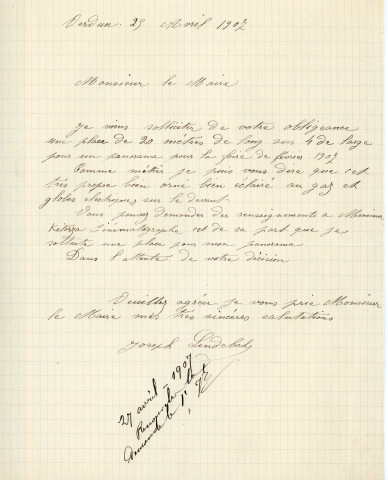 Verdun. 25 Avril 1907
Monsieur le Maire
Je viens solliciter de votre obligeance
une place de 20 mètres de long sur 4 de large
pour un panorama pour la foire de février 1907
Comme métier je peux vous dire que cet
très propre bien orné bien éclairé au gaz et
globes électriques sur le devant.
Vous pouvez demander des renseignements a Monsieur
Ketorza Cinématographe cet de sa part que je
sollicite une place pour mon panorama
Dans l'attente de votre décision
Veuillez agréer je vous prie Monsieur
le Maire mes très sincères salutations
Joseph
27 avril 1907
Demande le 1er